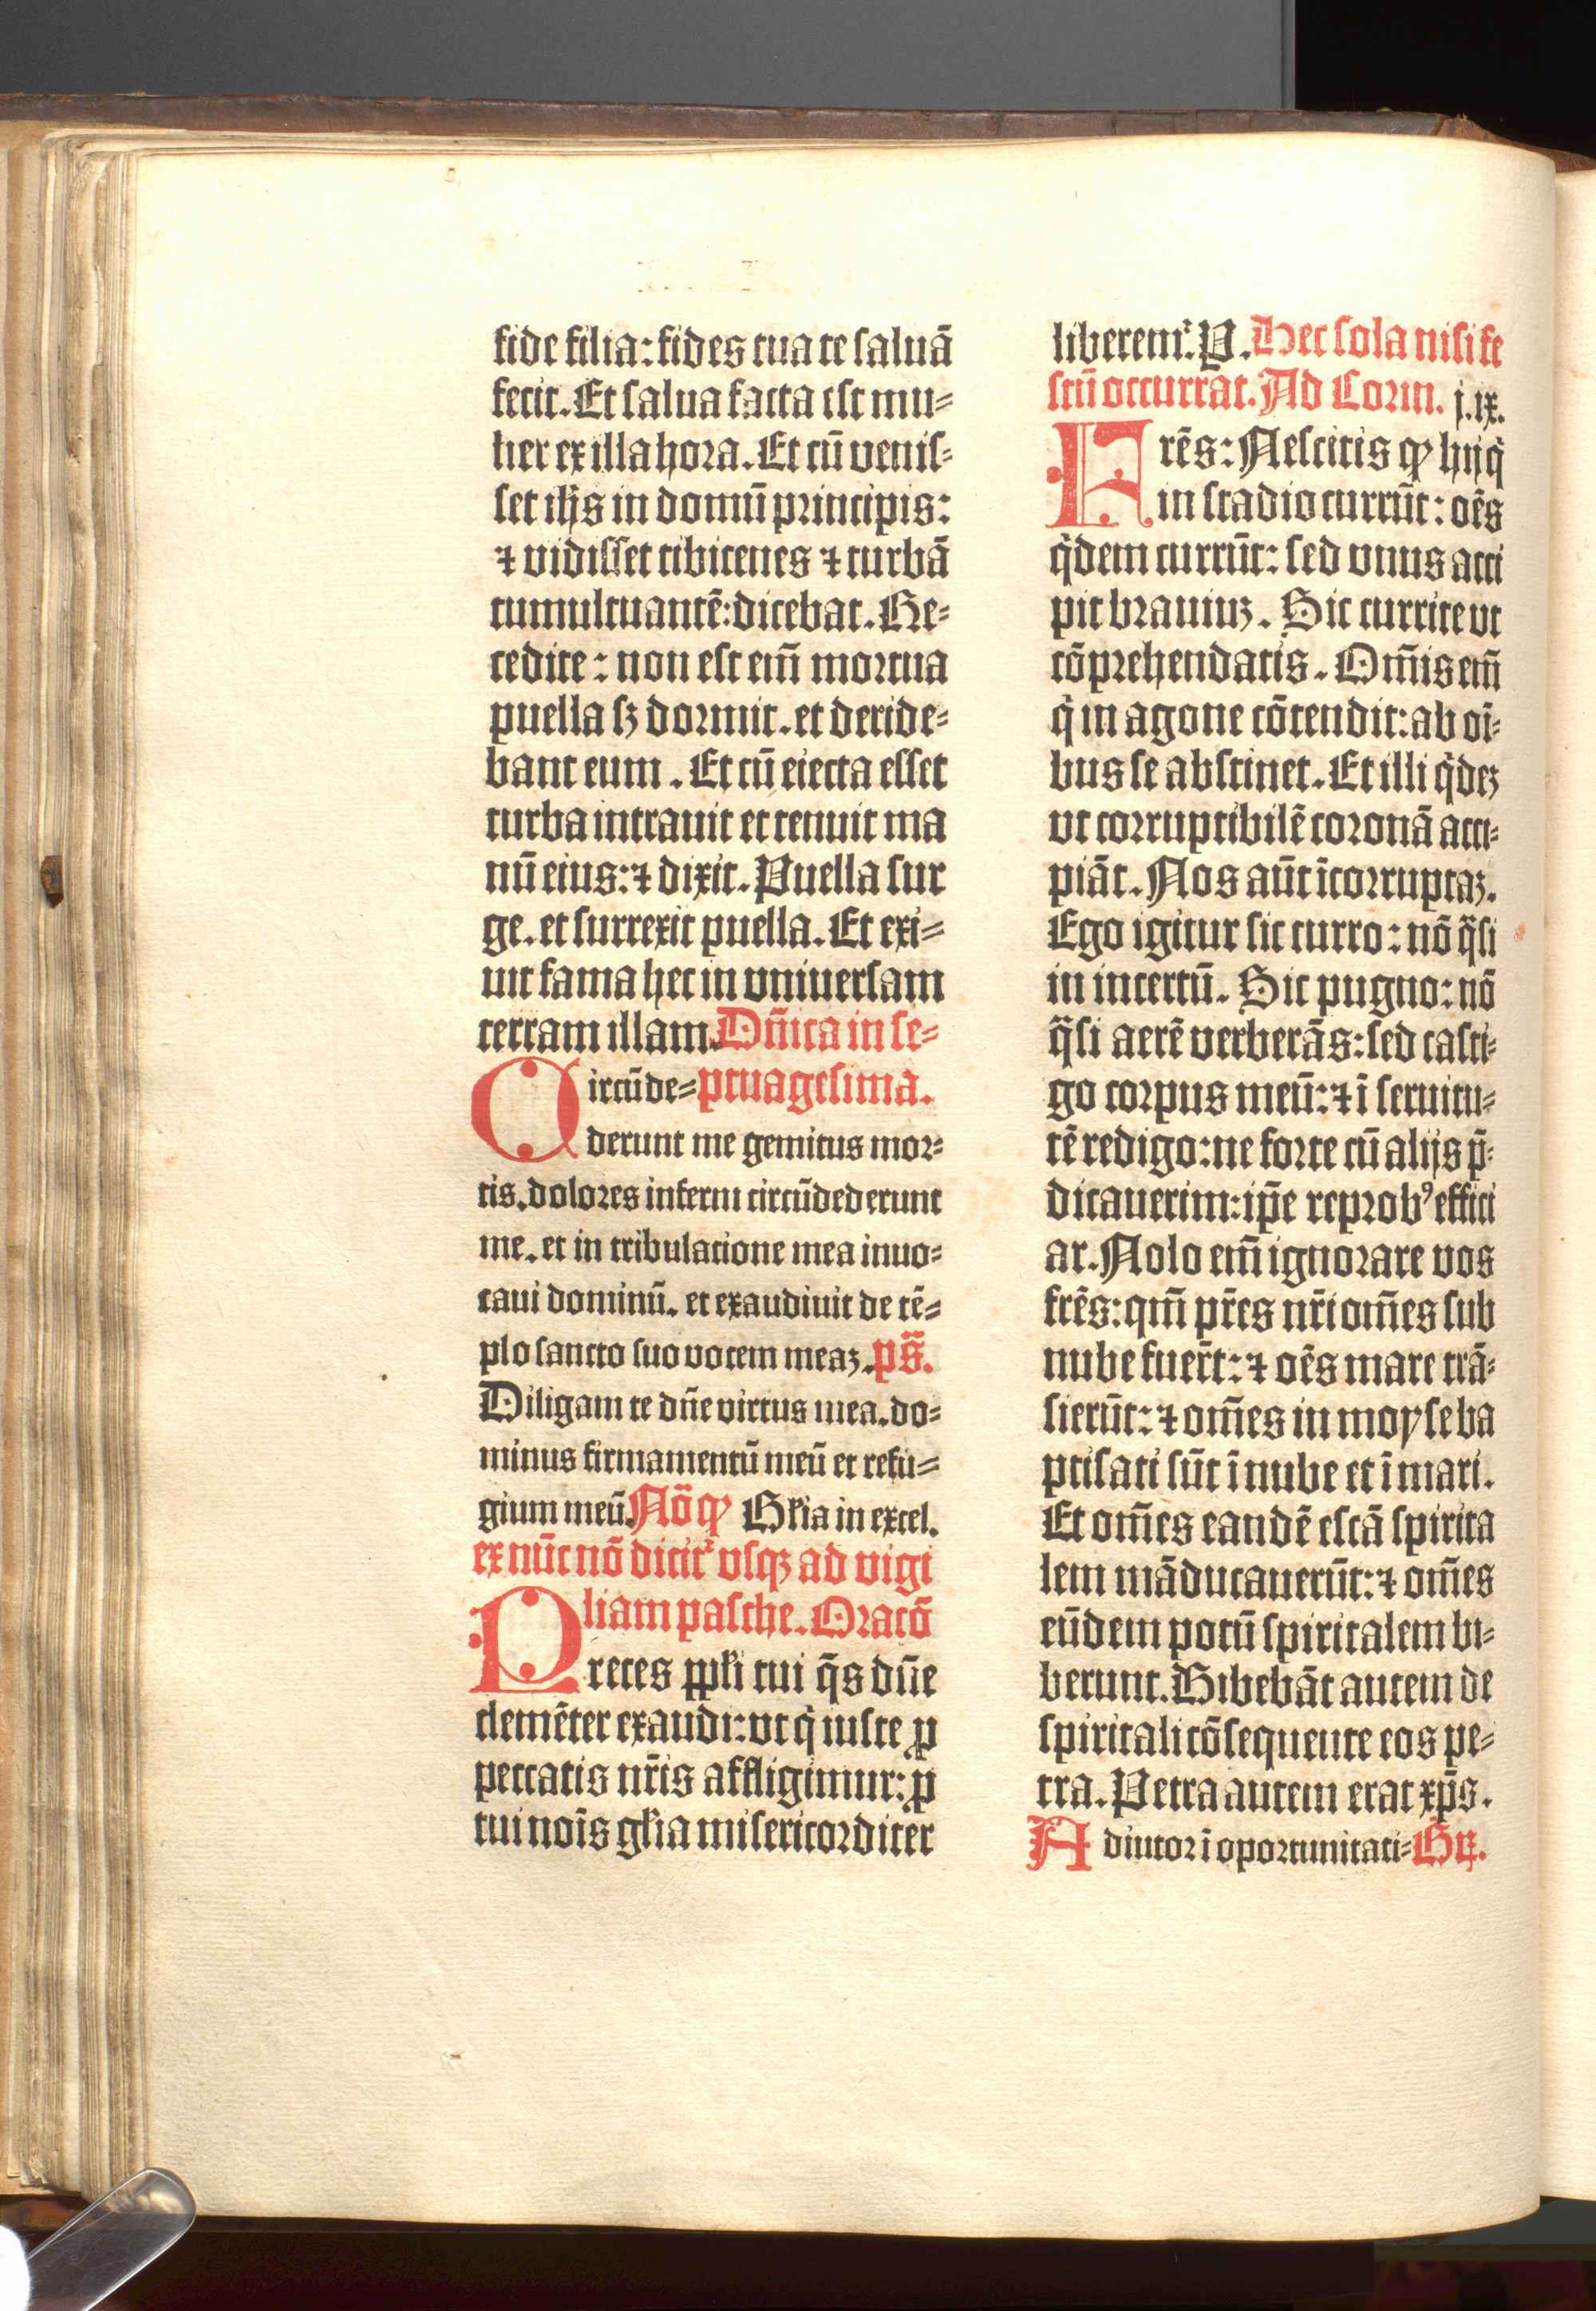 fide filia: fides tua te saluā
fecit. Et salua facta est mu=
lier ex illa hora. Et cū venis=
set ihs in domū principis:
⁊ vidisset tibicenes ⁊ turbā
tumultuantē: dicebat. Re=
cedite: non est em̄ mortua
puella sꝫ dormit. et deride=
bant eum. Et cū eiecta esset
turba intrauit et tenuit ma
nū eius: ⁊ dixit. Puella sur
ge. et surrexit puella. Et exi=
uit fama hec in vniuersam
terram illam. Dn̄ica in se=
Circūde= ptuagesima.
derunt me gemitus mor=
tis. dolores inferni circūdederunt
me. et in tribulatione mea inuo=
caui dominū. et exaudiuit de tē=
plo sancto suo vocem meaꝫ. ps̄.
Diligam te dn̄e virtus mea. do=
minus firmamentū meū et refu=
gium meū. Nō ꝙ Gl̄ia in excel.
ex nūc nō dicit᷑ vsqꝫ ad vigi
liam pasche. Oracō
Preces ppl̄i tui q̄s dn̄e
clemēter exaudi: vt q̇ iuste ꝑ
peccatis nr̄is affligimur: ꝓ
tui noīs gl̄ia misericorditer
liberem᷑. P. Hec sola nisi fe
stū occurrat. Ad Corin. j. ix.
Frēs: Nescitis ꝙ hij q̇
in stadio currūt: oēs
q̇dem currūt: sed vnus acci
pit brauiuꝫ. Sic currite vt
cōprehendatis. Om̄is em̄
q̇ in agone cōtendit: ab oī=
bus se abstinet. Et illi q̇deꝫ
vt corruptibilē coronā acci=
piāt. Nos aūt īcorruptaꝫ.
Ego igitur sic curro: nō q̄si
in incertū. Sic pugno: nō
q̄si aerē verberās: sed casti=
go corpus meū: ⁊ ī seruitu=
tē redigo: ne forte cū alijs p̄=
dicauerim: ip̄e reprobꝰ effici
ar. Nolo em̄ ignorare vos
frēs: qm̄ pr̄es nr̄i om̄es sub
nube fuer̄t: ⁊ oēs mare trā=
sierūt: ⁊ om̄es in moyse ba
ptisati sūt ī nube et ī mari.
Et om̄es eandē escā spirita
lem māducauerūt: ⁊ om̄es
eūdem potū spiritalem bi=
berunt. Bibebāt autem de
spiritali cōsequente eos pe=
tra. Petra autem erat xp̄s.
Adiutor ī oportunitati= Gꝶ.